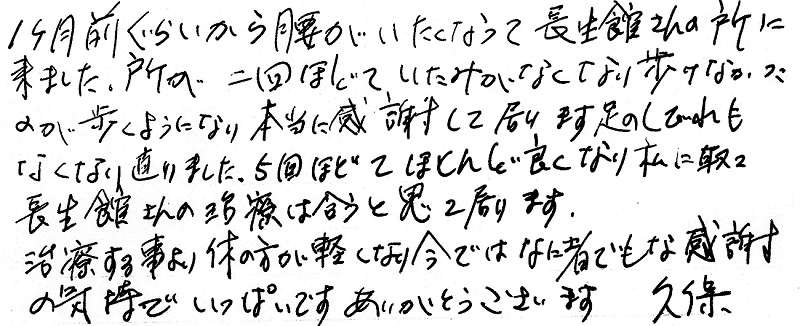 1ヶ月前ぐらいから腰がいたくなって長生館さんの所に
来ました。所が二回ほどでいたみがなくなり歩けなかった
のが歩くようになり本当に感謝して居ります足のしびれも
なくなり直りました。5回ほどでほとんど良くなり私に取っ
長生館さんの治療は合うと思って居ります。
治療する事より体の方が軽くなり今ではなに者でもな感謝
の気持でいっぱいですありがとうございます 久保、